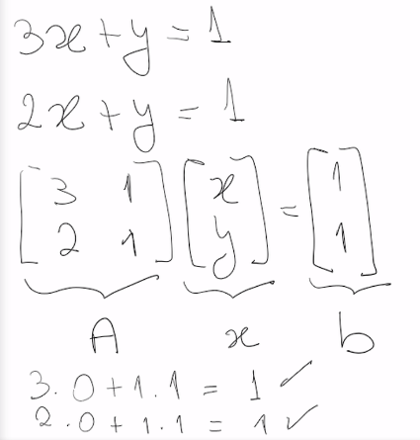 3x+y=1
2x+y=1
[3 1] [x] = [1]
[2 1] [y] [1]
A x b
3.0+1.1 = 1 ✓
2.0+1.1 = 1 ✓